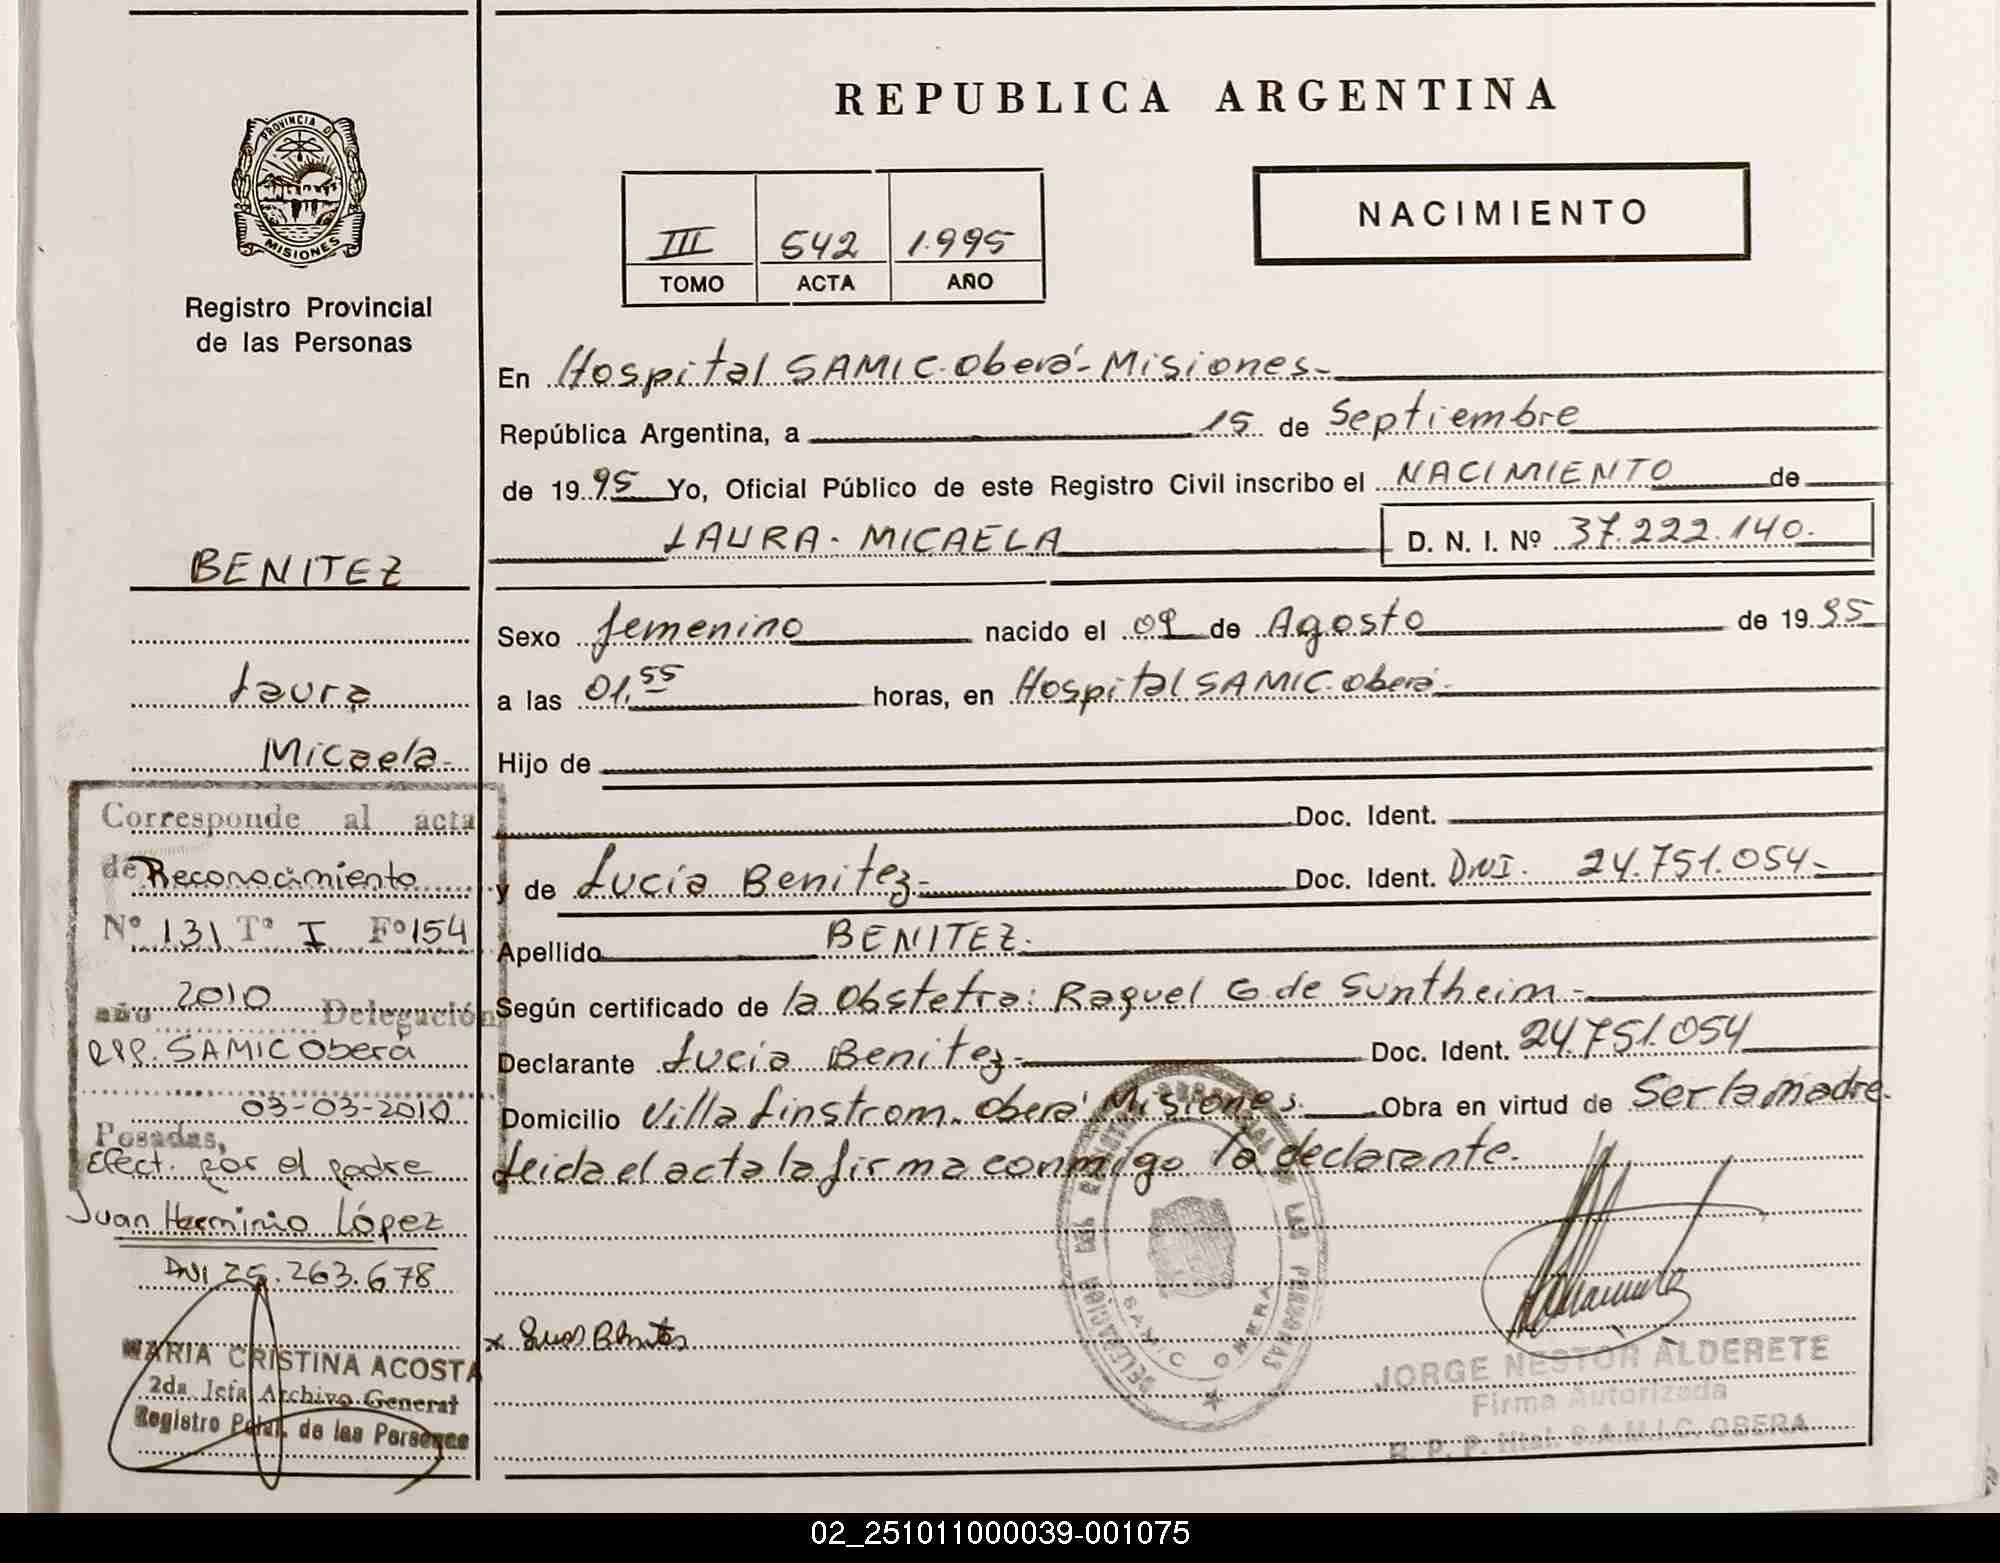 REPUBLICA ARGENTINA
PROVINCIA D
MISIONES
Registro Provincial
de las Personas
NACIMIENTO
III 542 1.995
TOMO ACTA AÑO
En Hospital SAMIC-Oberá-Misiones-
República Argentina, a 15 de Septiembre
de 1995 Yo, Oficial Público de este Registro Civil inscribo el NACIMIENTO de
LAURA-MICAELA D. N. I. Nº 37.222.140.
BENITEZ
Laura
Micaela-
Sexo femenino nacido el 09 de Agosto de 1995
a las 01,55 horas, en Hospital SAMIC-oberá-
Hijo de
Doc. Ident.
y de Lucía Benitez- Doc. Ident. DNI. 24.751.054-
Apellido BENITEZ.
Según certificado de la Obstetra: Raquel G. de Suntheim-
Declarante Lucía Benitez- Doc. Ident. 24.751.054
Domicilio Villa Linstrom-Oberá Misiones. Obra en virtud de Ser la madre.
Leida el acta la firma conmigo la declarante.
Corresponde al acta
de Reconocimiento
Nº 131 Tº I Fº 154
año 2010 Delegación
SAMIC Oberá
03-03-2010
Posadas,
Efect. por el padre
Juan Herminio López
DNI 25.263.678
MARIA CRISTINA ACOSTA
2da. Jefa Archivo General
Registro Pcial. de las Personas
x Lucia Benites
DELEGACION DEL REGISTRO PROVINCIAL DE LAS PERSONAS
SAMIC OBERA
JORGE NESTOR ALDERETE
Firma Autorizada
R. P. P. Htal. S.A.M.I.C. OBERA
02_251011000039-001075